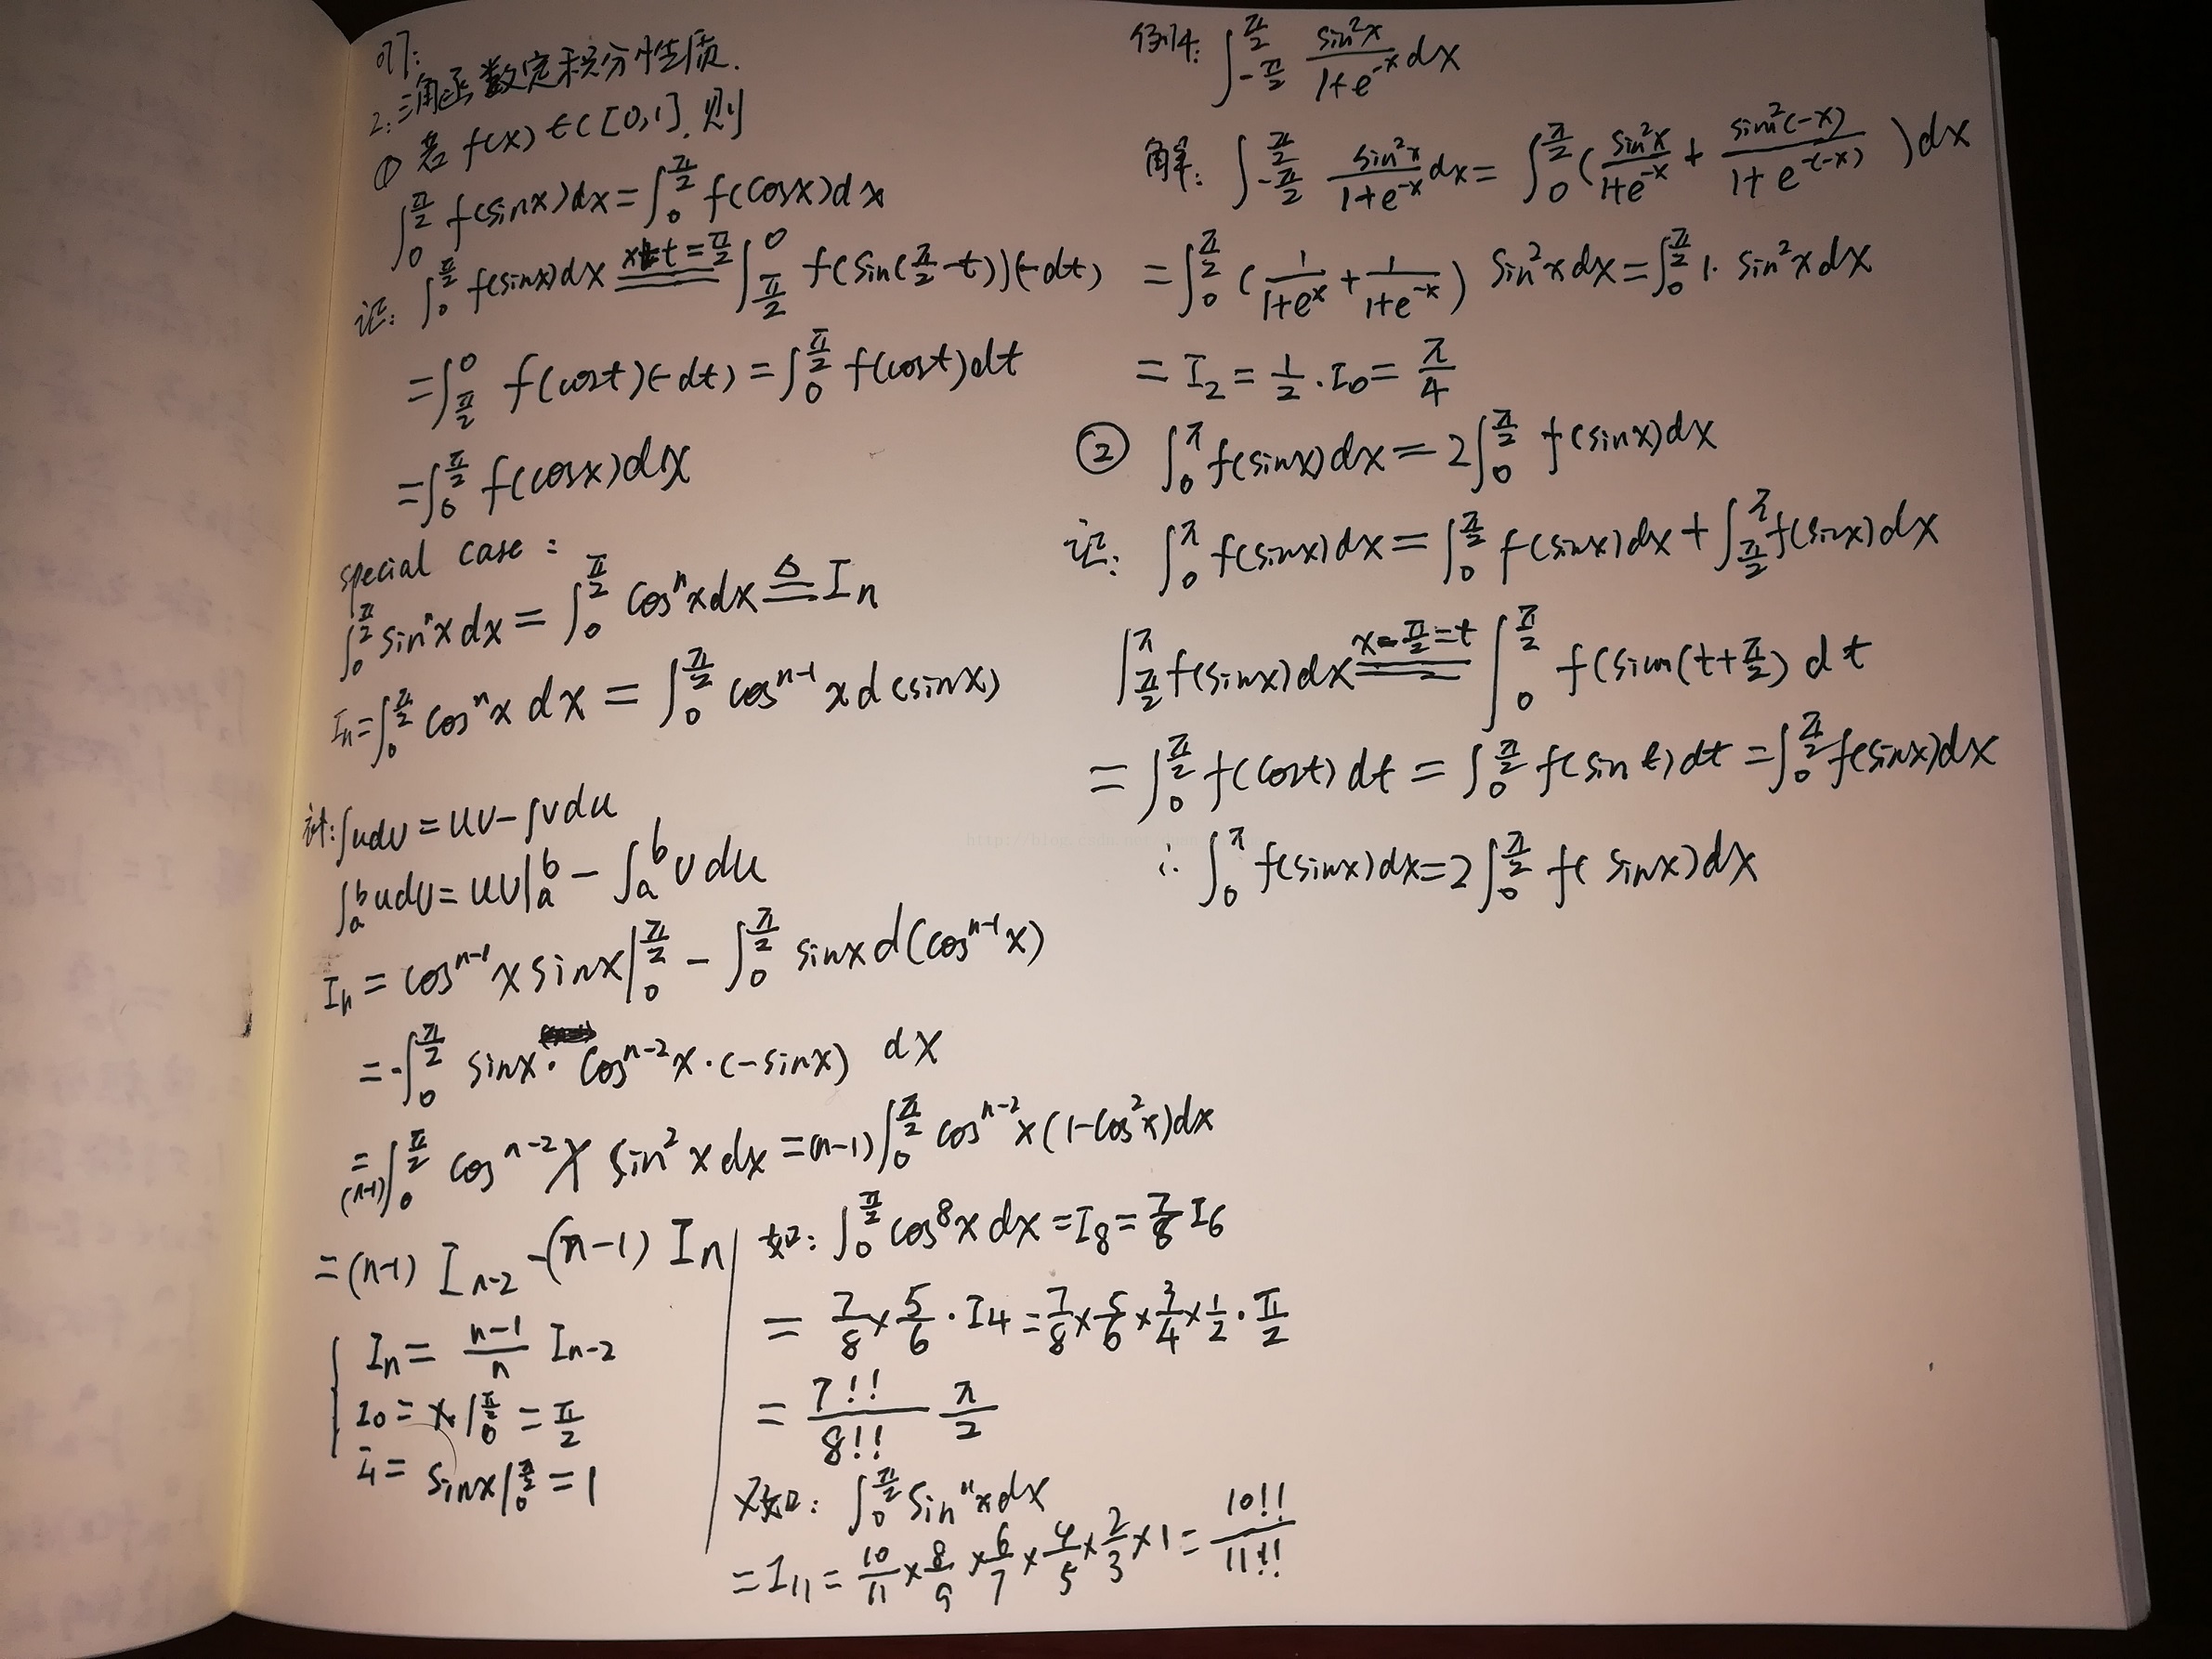 2.三角函数定积分性质.
① 若 f(x)∈C[0,1].则
∫₀^(π/2) f(sinx)dx=∫₀^(π/2) f(cosx)dx
证: ∫₀^(π/2) f(sinx)dx x+t=π/2 ∫_(π/2)^0 f(sin(π/2-t))(-dt)
=∫_(π/2)^0 f(cost)(-dt)=∫₀^(π/2) f(cost)dt
=∫₀^(π/2) f(cosx)dx
special case:
∫₀^(π/2) sinⁿx dx=∫₀^(π/2) cosⁿx dx ≜ Iₙ
Iₙ=∫₀^(π/2) cosⁿx dx=∫₀^(π/2) cos^(n-1) x d(sinx)
∫udv=uv-∫vdu
∫_a^b udv=uv|_a^b-∫_a^b vdu
Iₙ=cos^(n-1) x sinx|₀^(π/2)-∫₀^(π/2) sinx d(cos^(n-1) x)
=-∫₀^(π/2) sinx·cos^(n-2) x·(-sinx) dx
=(n-1)∫₀^(π/2) cos^(n-2) x sin²x dx=(n-1)∫₀^(π/2) cos^(n-2) x(1-cos²x)dx
=(n-1) I_(n-2)-(n-1) Iₙ
{ Iₙ=(n-1)/n I_(n-2)
I₀=x|₀^(π/2)=π/2
I₁=sinx|₀^(π/2)=1
如: ∫₀^(π/2) cos⁸x dx=I₈=7/8 I₆
=7/8×5/6·I₄=7/8×5/6×3/4×1/2·π/2
=7!!/8!! π/2
又如: ∫₀^(π/2) sin¹¹x dx
=I₁₁=10/11×8/9×6/7×4/5×2/3×1=10!!/11!!
例4: ∫_(-π/2)^(π/2) sin²x/(1+e^(-x)) dx
解: ∫_(-π/2)^(π/2) sin²x/(1+e^(-x)) dx=∫₀^(π/2) (sin²x/(1+e^(-x))+sin²(-x)/(1+e^(-(-x))))dx
=∫₀^(π/2) (1/(1+e^x)+1/(1+e^(-x))) sin²x dx=∫₀^(π/2) 1·sin²x dx
=I₂=1/2·I₀=π/4
② ∫₀^π f(sinx)dx=2∫₀^(π/2) f(sinx)dx
证: ∫₀^π f(sinx)dx=∫₀^(π/2) f(sinx)dx+∫_(π/2)^π f(sinx)dx
∫_(π/2)^π f(sinx)dx x-π/2=t ∫₀^(π/2) f(sin(t+π/2) dt
=∫₀^(π/2) f(cost)dt=∫₀^(π/2) f(sint)dt=∫₀^(π/2) f(sinx)dx
∴ ∫₀^π f(sinx)dx=2∫₀^(π/2) f(sinx)dx